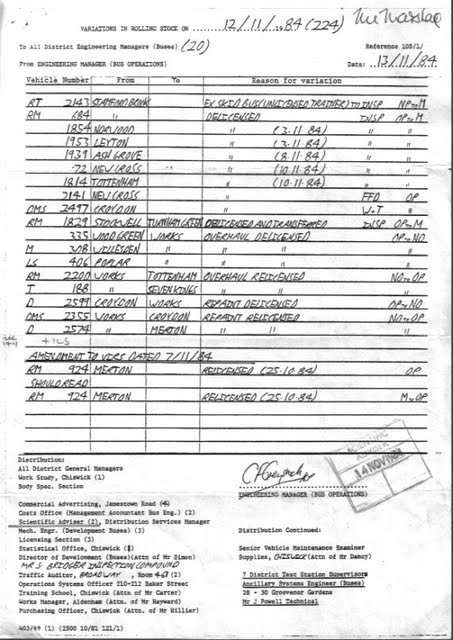 VARIATIONS IN ROLLING STOCK ON 12/11/1984 (224)
To All District Engineering Managers (Buses) (20) Reference 103/1/
From ENGINEERING MANAGER (BUS OPERATIONS) Date: 13/11/84
Vehicle Number From To Reason for variation
RT 2143 STAMFORD BROOK EX SKID BUS (UNLICENSED TRAINER) TO INSP NP to M
RM 684 " DELICENSED INSP OP to M
1854 NORWOOD " (3.11.84) " "
1953 LEYTON " (3.11.84) " "
1939 ASH GROVE " (8.11.84) " "
72 NEW CROSS " (10.11.84) " "
1814 TOTTENHAM " (10.11.84) " "
2141 NEW CROSS FFD OP
DMS 2497 CROYDON W+T "
RM 1829 STOCKWELL TURNHAM GREEN DELICENSED AND TRANSFERRED INSP OP to M
335 WOOD GREEN WORKS OVERHAUL DELICENSED OP to NO
M 308 WILLESDEN " " " "
LS 406 POPLAR " " " "
RM 2200 WORKS TOTTENHAM OVERHAUL RELICENSED NO to OP
T 188 " SEVEN KINGS " " "
D 2599 CROYDON WORKS REPAINT DELICENSED OP to NO
DMS 2355 WORKS CROYDON REPAINT RELICENSED NO to OP
D 2574 " MERTON " " "
+1LS
AMENDMENT TO VIRS DATED 7/11/84
RM 924 MERTON RELICENSED (25.10.84) OP
SHOULD READ
RM 924 MERTON RELICENSED (25.10.84) M to OP
SCIENTIFIC
ADVISER
14 NOV 1984
Distribution:
All District General Managers
Work Study, Chiswick (1)
Body Spec. Section
ENGINEERING MANAGER (BUS OPERATIONS)
Commercial Advertising, Jamestown Road (4)
Costs Office (Management Accountant Bus Eng.) (2)
Scientific Adviser (2), Distribution Services Manager
Mech. Engr. (Development Buses) (3)
Licensing Section (3)
Statistical Office, Chiswick (1)
Director of Development (Buses)(Attn of Mr Simon)
MR S BRIDGER INSPECTION COMPOUND
Traffic Auditor, BROADWAY, Room 463 (2)
Operations Systems Officer 210-212 Baker Street
Training School, Chiswick (Attn of Mr Carter)
Works Manager, Aldenham (Attn. of Mr Hayward)
Purchasing Officer, Chiswick (Attn of Mr Hillier)
Distribution Continued:
Senior Vehicle Maintenance Examiner
Supplies, CHISWICK (Attn of Mr Dancy)
7 District Test Station Supervisors
Ancillary Systems Engineer (Buses)
28 - 30 Grosvenor Gardens
Mr J Powell Technical
403/69 (1) (2500 10/81 121/1)